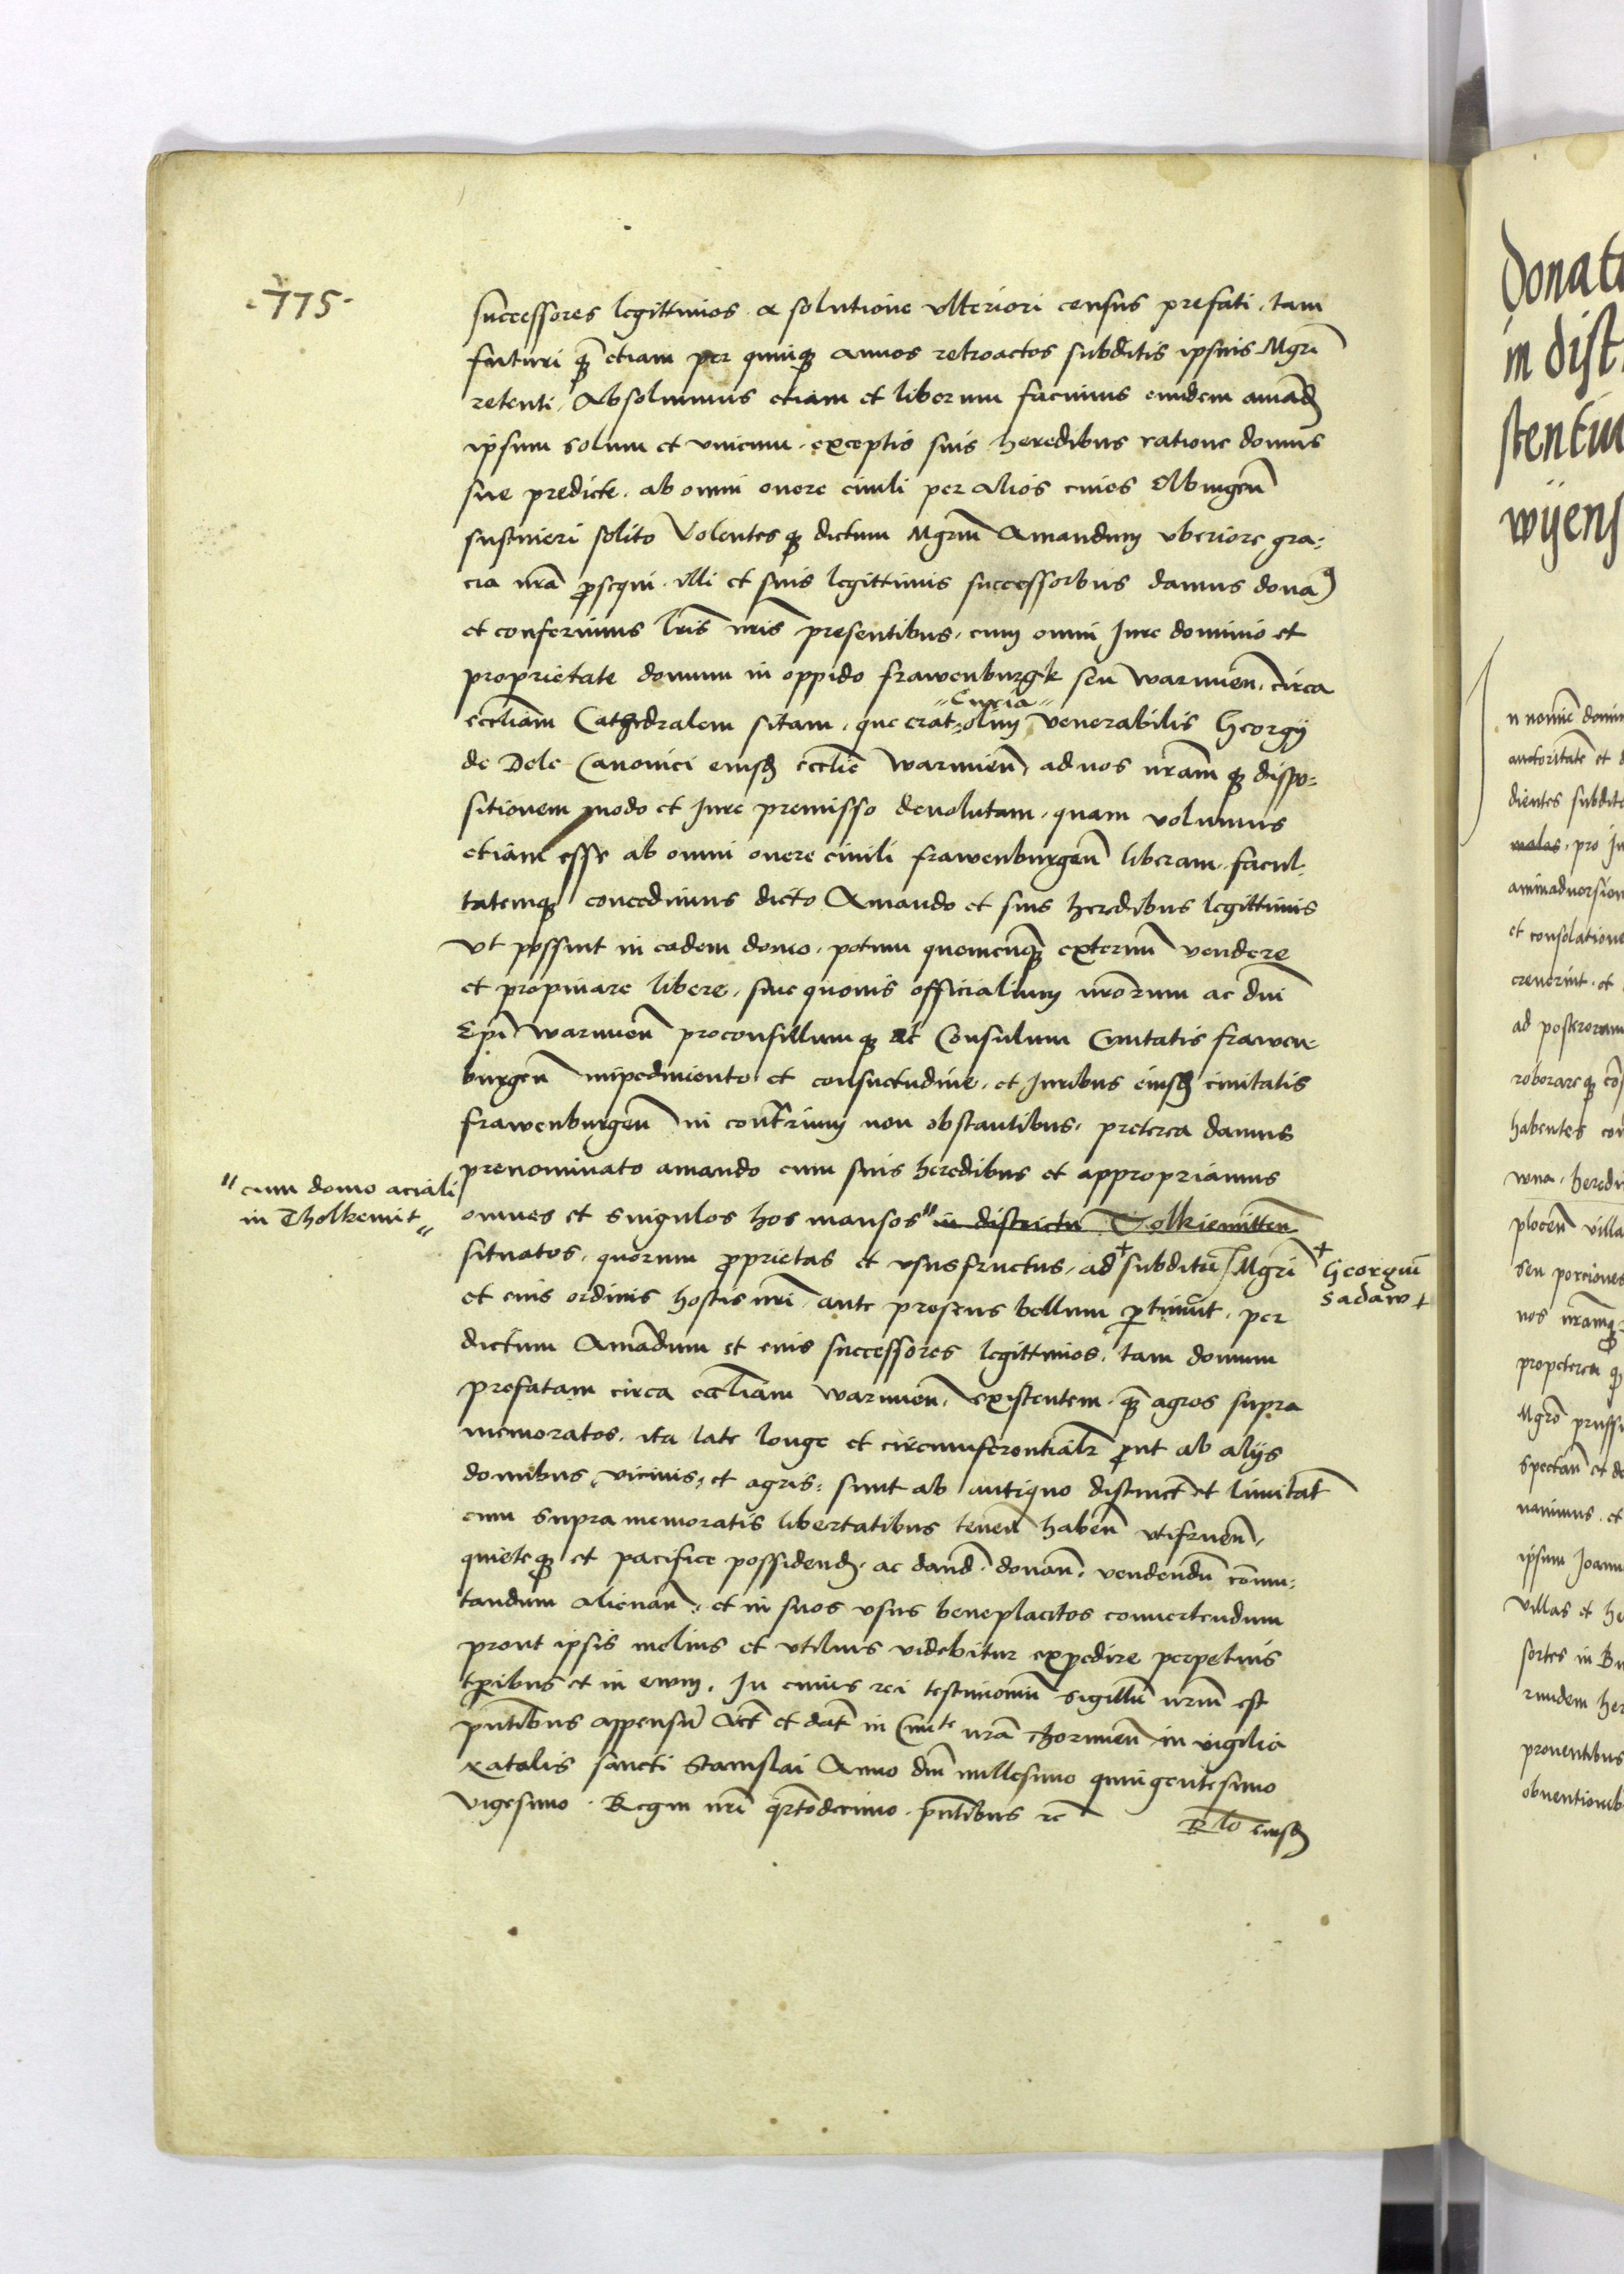 ·775·
successores legittimos a solutione ulteriori census prefati, tam
futuri q̃ etiam per quinq annos retroactos subditis ipsius Mgri
retenti, Absoluimus etiam et liberum facimus eundem amad
ipsum solum et unicum, exceptis suis heredibus ratione domus
sue predicte, ab omni onere ciuili per alios ciues Elbingen̄
sustineri solito Volentes q dictum Mgrm̄ Amandum vberiore gra=
cia nrā p̄sequi, illi et suis legittimis successorbus damus dona9
et conferimus lrīs nrīs presentibus, cum omni Jure dominio et
proprietate domum in oppido frawenburgk seu warmien̄, circa
"Curia"
eccliam Cathedralem sitam, que erat olim venerabilis Georgij
de Dele Canonici eiusd ecclie warmien̄, ad nos nram q dispo=
sitionem modo et Jure premisso deuolutam, quam volumus
etiam esse ab omni onere ciuili frawenburgen̄ liberam, facul=
tatemq concedimus dicto Amando et suis heredibus legittimis
Vt possint in eadem domo, potum quemcunq externū vendere
et propinare libere, sine quouis officialium nrorum ac dnī
Epī warmien̄ proconsillum q et Consulum Ciuitatis frawen=
burgen̄ impedimento et consuetudine, et Juribus eiusd ciuitatis
frawenburgen̄ in contrium non obstantibus, preterea damus
prenominato amando cum suis heredibus et appropriamus
"cum domo aciali
in Tholkemit"
omnes et singulos hos mansos" in districtu Tolkiemitten̄
situatos, quorum p̄prietas et ususfructus, ad + subditū Mgri
+ Georgiū
Sadaw +
et eius ordinis hostis nrī ante presens bellum p̄tinuit, per
dictum Amādum et eius successores legittimos, tam domum
prefatam circa eccliam warmien̄, existentem, q̃ agros supra
memoratos, ita late longe et circumferentialr̄ p̄ut ab alijs
domibus, vicinis, et agris, sunt ab antiquo distinct et limitat
cum supra memoratis libertatibus tenen̄ haben̄ vtifruen̄,
quieteq et pacifice possidend, ac dand, donan̄, vendendū com̄u=
tandum alienan̄, et in suos usus beneplacitos conuertendum
prout ipsis melius et vtilius videbitur expedire perpetuis
tp̄ribus et in ewm, In cuius rei testimoniū sigillū nrm̄ est
pn̄tibus appensū Act et dat in Ciuite nrā Thorunien̄ in vigilia
natalis sancti Stanislai Anno dnī millesimo quingentesimo
vigesimo. Regni nrī q̄rtodecimo. pn̄tibus rc
Rlo eiusd
Donati
in dist
stentur
wijens
n nomīe domin
auctoritate et d
dientes subdit
malos, pro Ju
animaduersion
et consolatione
creuerint, et
ad posterorum
roborare q co
habentes con
wna, heredi
plocen̄ villa
seu porciones
nos nram q
propeterea q
Mgro prussi
spectan̄ et do
nauimus, et
ipsum Joann
villas et he
sortes in Bu
eiusdem her
prouentibus
obuentionib